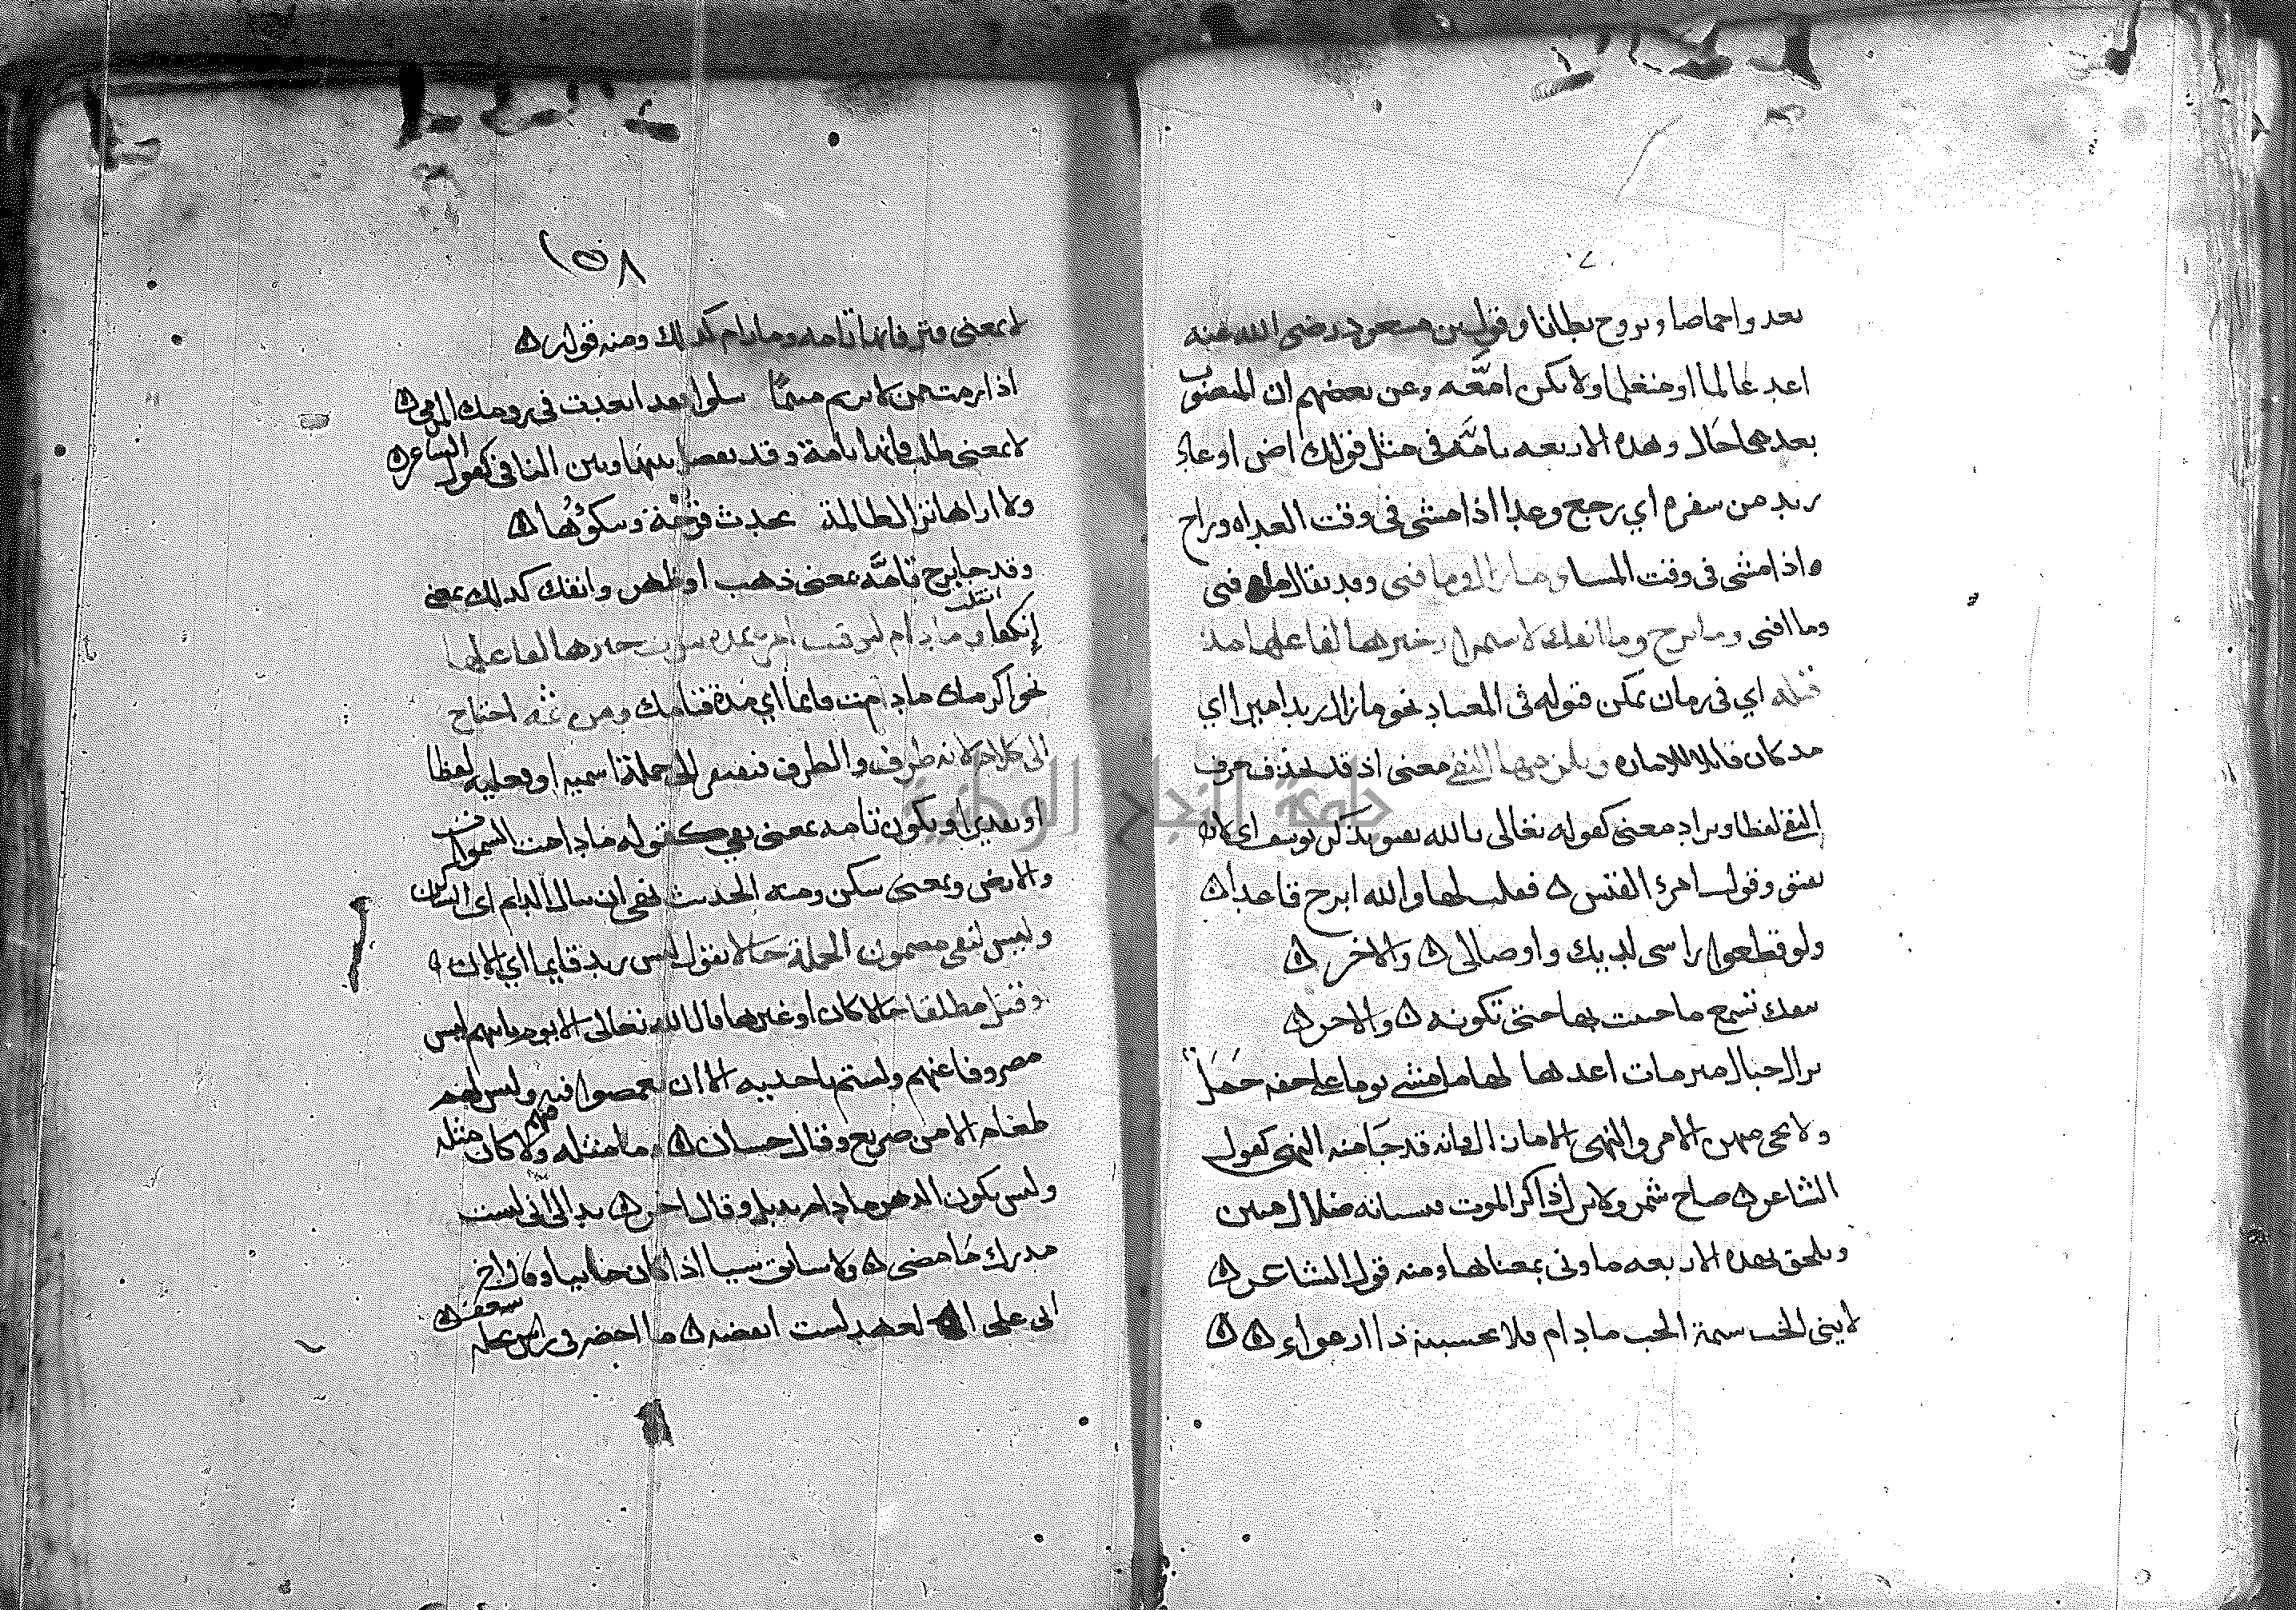 تغدوا خماصا وتروح بطانا وقول بن مسعود رضى الله عنه
اغد عالما او متعلما ولا تكن امعه وعن بعضهم ان المنصوب
بعدهما حال وهذه الاربعه تامه فى مثل قولك اض او عاد
زيد من سفره اي رجع وغدا اذا مشى فى وقت الغداه وراح
واذا مشى فى وقت المساء وما زال وما فتى وقد يقال
وما افتى وما برح وما انفك لاستمرار خبرها لفاعلها مذ
قبله اي فى زمان يمكن قبوله فى المعتاد نحو ما زال زيد اميرا اي
مذ كان قابلا للاماره ويلزمها النفي معنى اذ قد يحذف حرف
النفي لفظا ويراد معنى كقوله تعالى تالله تفتو تذكر يوسف اى لا
تفتو وقول امرئ القيس ه فقلت لها والله ابرح قاعدا ه
ولو قطعوا راسى لديك واوصالى ه والاخر ه
تنفك تسمع ما حييت بهالك حتى تكونه ه والاخر ه
تزال حبال مبرمات اعدها لها ما مشى يوما على خفه جمل
ولا يجى منهن الامر والنهى الا مازال فانه قد جا منه النهى كقول
الشاعر ه صاح شمر ولا تزل ذاكر الموت فنسيانه ضلال مبين
ويلحق بهذه الاربعه ما ونى بمعناها ومنه قول الشاعر ه
لا ينى الخب شيمة الحب ما دام فلا تحسبنه ذا ارعواء ه ه
١٥٨
لا بمعنى فتر فانها تامه وما رام كذلك ومنه قوله ه
اذا رمت ممن لا يريم متيما سلوا فقد ابعدت فى رومك المرمى ه
لا بمعنى طلب فانها تامة وقد يفصل بينها وبين النافى كقول الشاعر ه
ولا اراها تزال ظالمة تحدث قرحة وتنكؤها ه
وقد جا برح تامه بمعنى ذهب او ظهر وانفك كذلك بمعنى
انفك وما دام لتوقيت امر بمدة ثبوت خبرها لفاعلها
نحو اكرمك ما دمت قائما اي مدة قيامك ومن ثمه احتاج
الى كلام لانه ظرف والظرف يفتقر الى جملة اسميه او فعليه لفظا
او تقديرا ويكون تامه بمعنى بقي كقوله ما دامت السموات
والارض وبمعنى سكن ومنه الحديث نهى ان يبال فى الدايم اى الساكن
وليس لنفى مضمون الجملة حالا تقول ليس زيد قايما اي الان
وقيل مطلقا حالا كان او غيرها قال الله تعالى الا يوم ياتيهم ليس
مصروفا عنهم ولستم باخذيه الا ان تغمضوا فيه وليس لهم
طعام الا من ضريع وقال حسان ه وما مثله فيهم ولا كان مثله
وليس يكون الدهر ما دام يذبل وقال اخر ه بدا لى انى لست
مدرك ما مضى ه ولا سابق شيا اذا كان جاييا وقال اخر
انى على العهد لست انقضه ه ما اخضر فى راس نخلة سعف ه
جامعة النجاح الوطنية